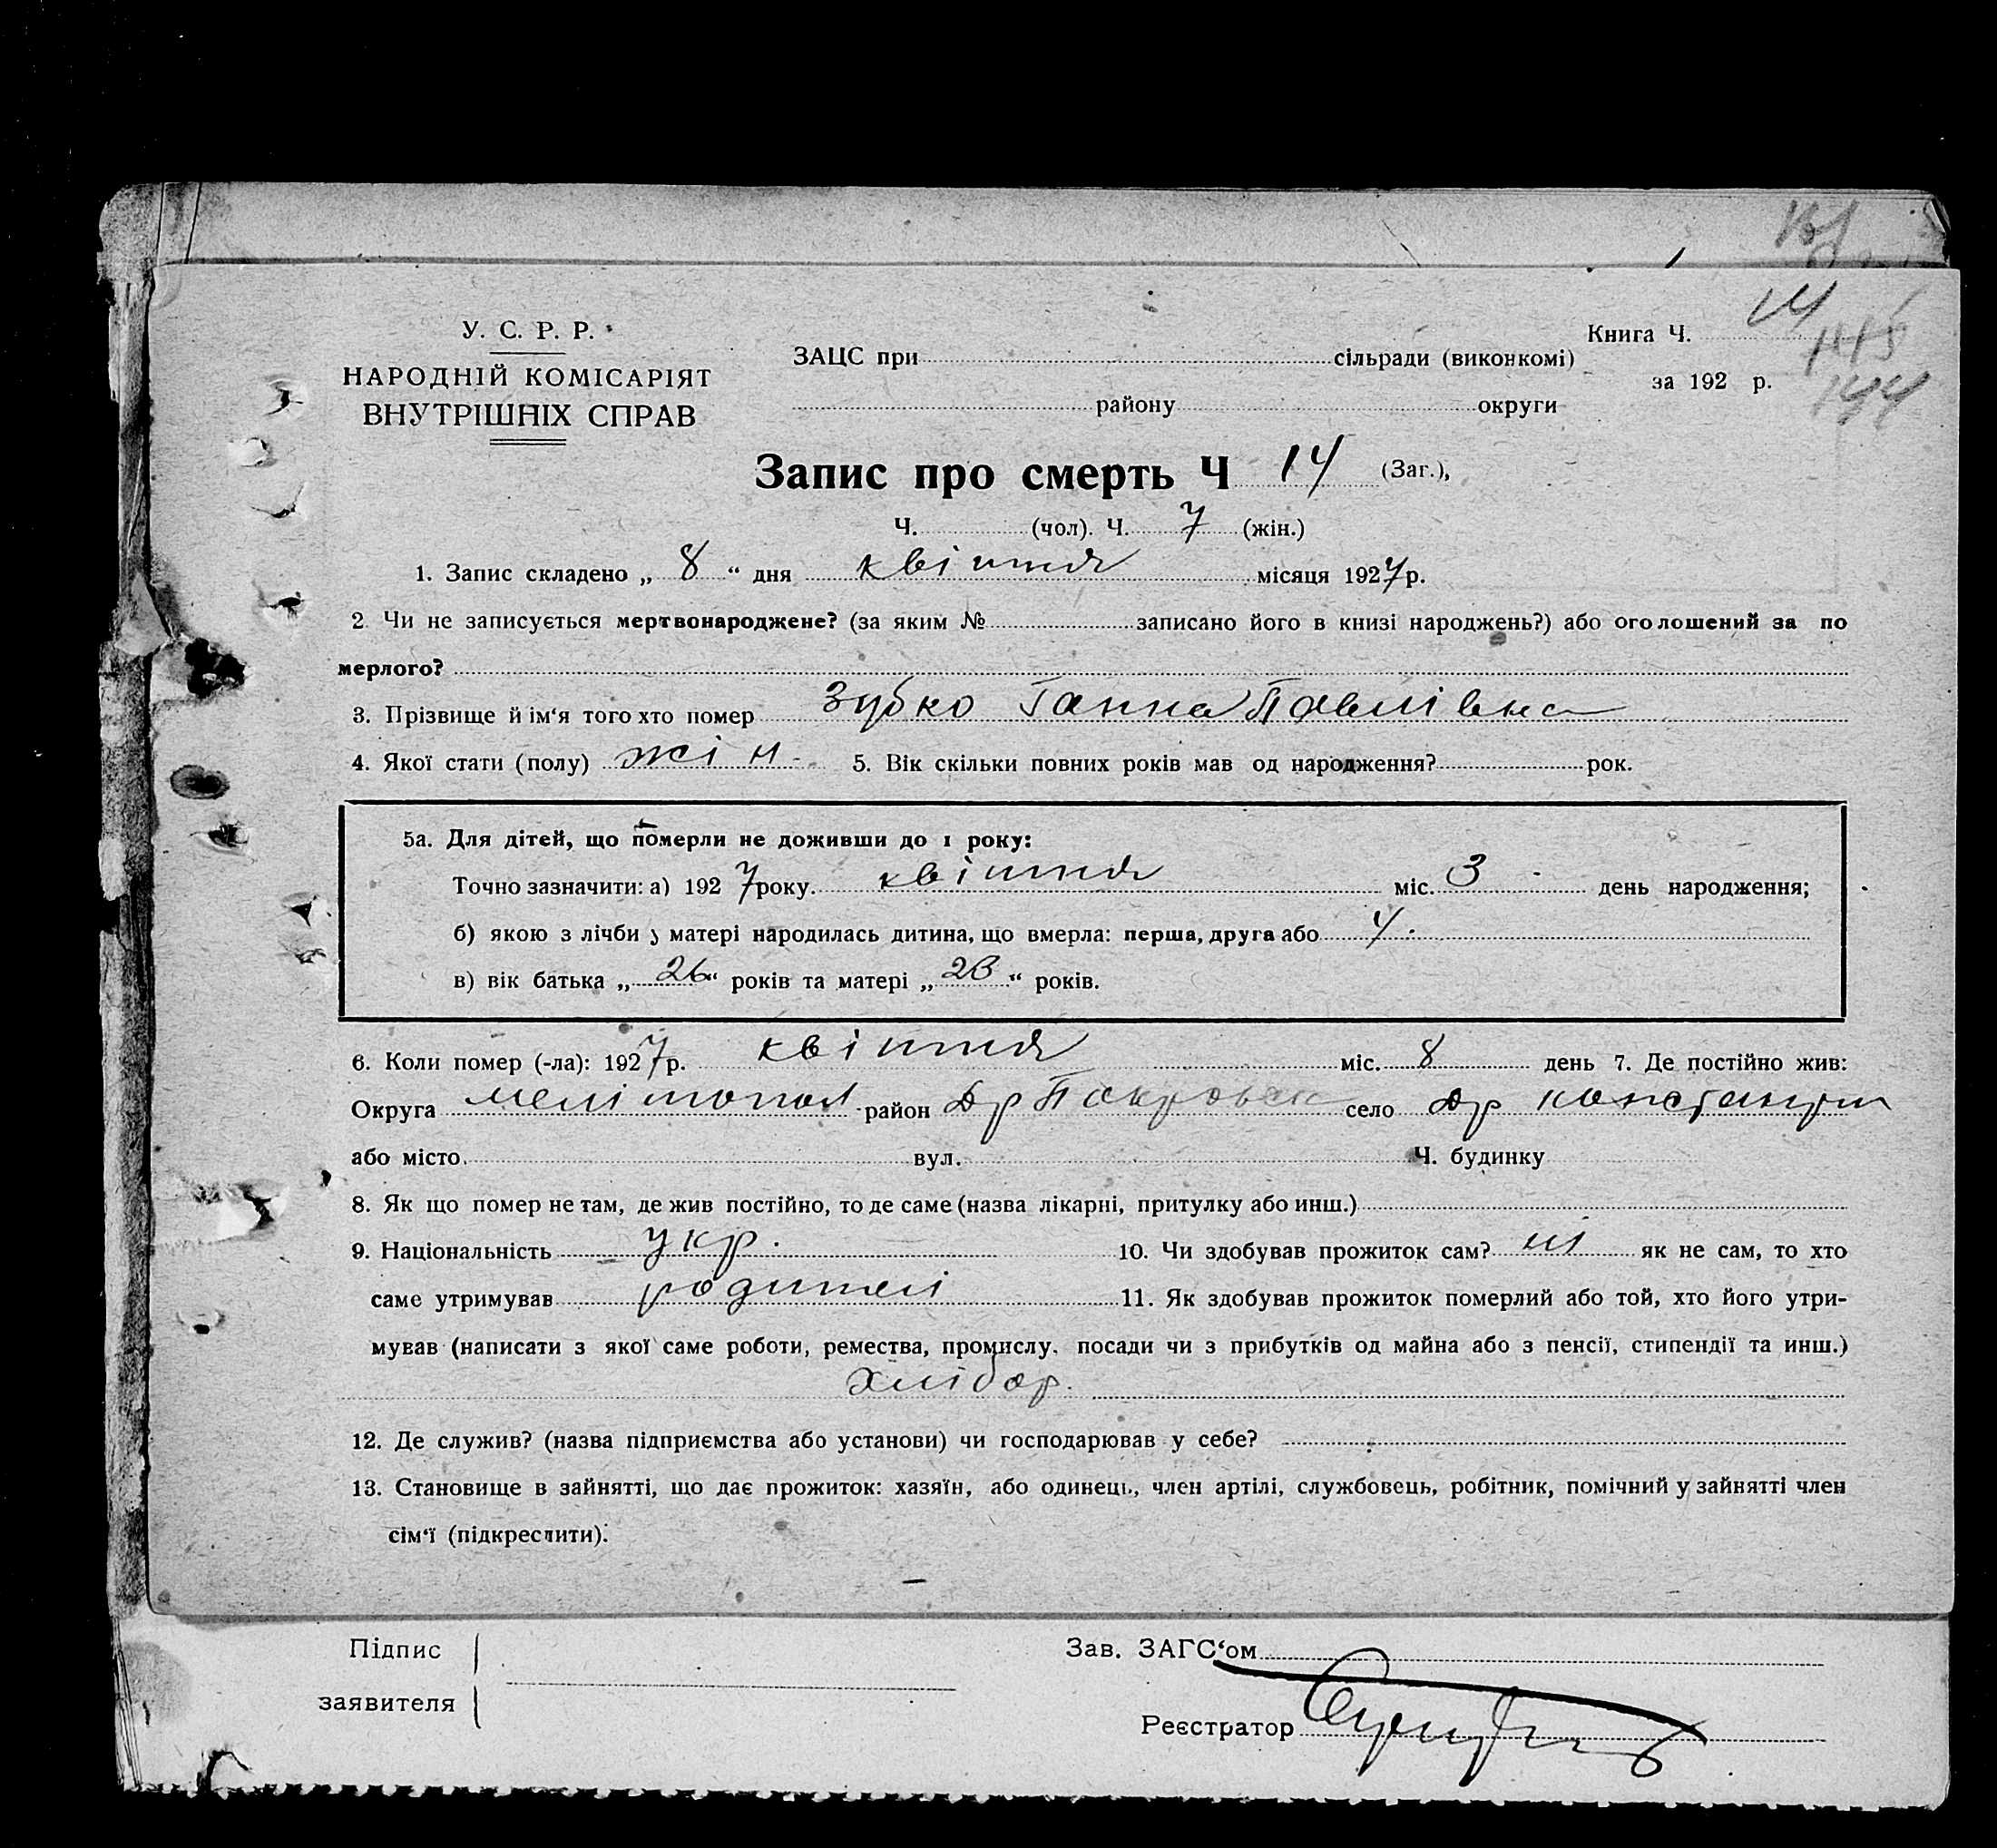 14
У. С. Р. Р.
Книга Ч.
145
ЗАЦС при сільради (виконкомі)
НАРОДНІЙ КОМІСАРІЯТ
за 192 р.
144
ВНУТРІШНІХ СПРАВ
району округи
Запис про смерть Ч 14 (Заг.),
Ч. (чол). Ч. 7 (жін.)
1. Запис складено „ 8 “ дня квітня місяця 1927 р.
2 Чи не записується мертвонароджене? (за яким № записано його в книзі народжень?) або оголошений за по
мерлого?
3. Прізвище й ім‘я того хто помер Зубко Ганна Павлівна
4. Якої стати (полу) жін. 5. Вік скільки повних років мав од народження? рок.
5а. Для дітей, що померли не доживши до 1 року:
Точно зазначити: а) 1927 року. квітня міс. 3 день народження;
б) якою з лічби у матері народилась дитина, що вмерла: перша, друга або 4.
в) вік батька „ 26 “ років та матері „ 23 “ років.
6. Коли помер (-ла): 1927 р. квітня міс. 8 день 7. Де постійно жив:
Округа Мелітопол район Др Покровск село Др
або місто. вул. Ч. будинку
8. Як що помер не там, де жив постійно, то де саме (назва лікарні, притулку або инш.)
9. Національність укр. 10. Чи здобував прожиток сам? ні як не сам, то хто
саме утримував родителі 11. Як здобував прожиток померлий або той, хто його утри-
мував (написати з якої саме роботи, ремества, промислу. посади чи з прибутків од майна або з пенсії, стипендії та инш.)
Хлібор.
12. Де служив? (назва підприємства або установи) чи господарював у себе?
13. Становище в зайнятті, що дає прожиток: хазяїн, або одинець, член артілі, службовець, робітник, помічний у зайнятті член
сім‘ї (підкреслити).
Підпис
Зав. ЗАГС‘ом
заявителя
Реєстратор